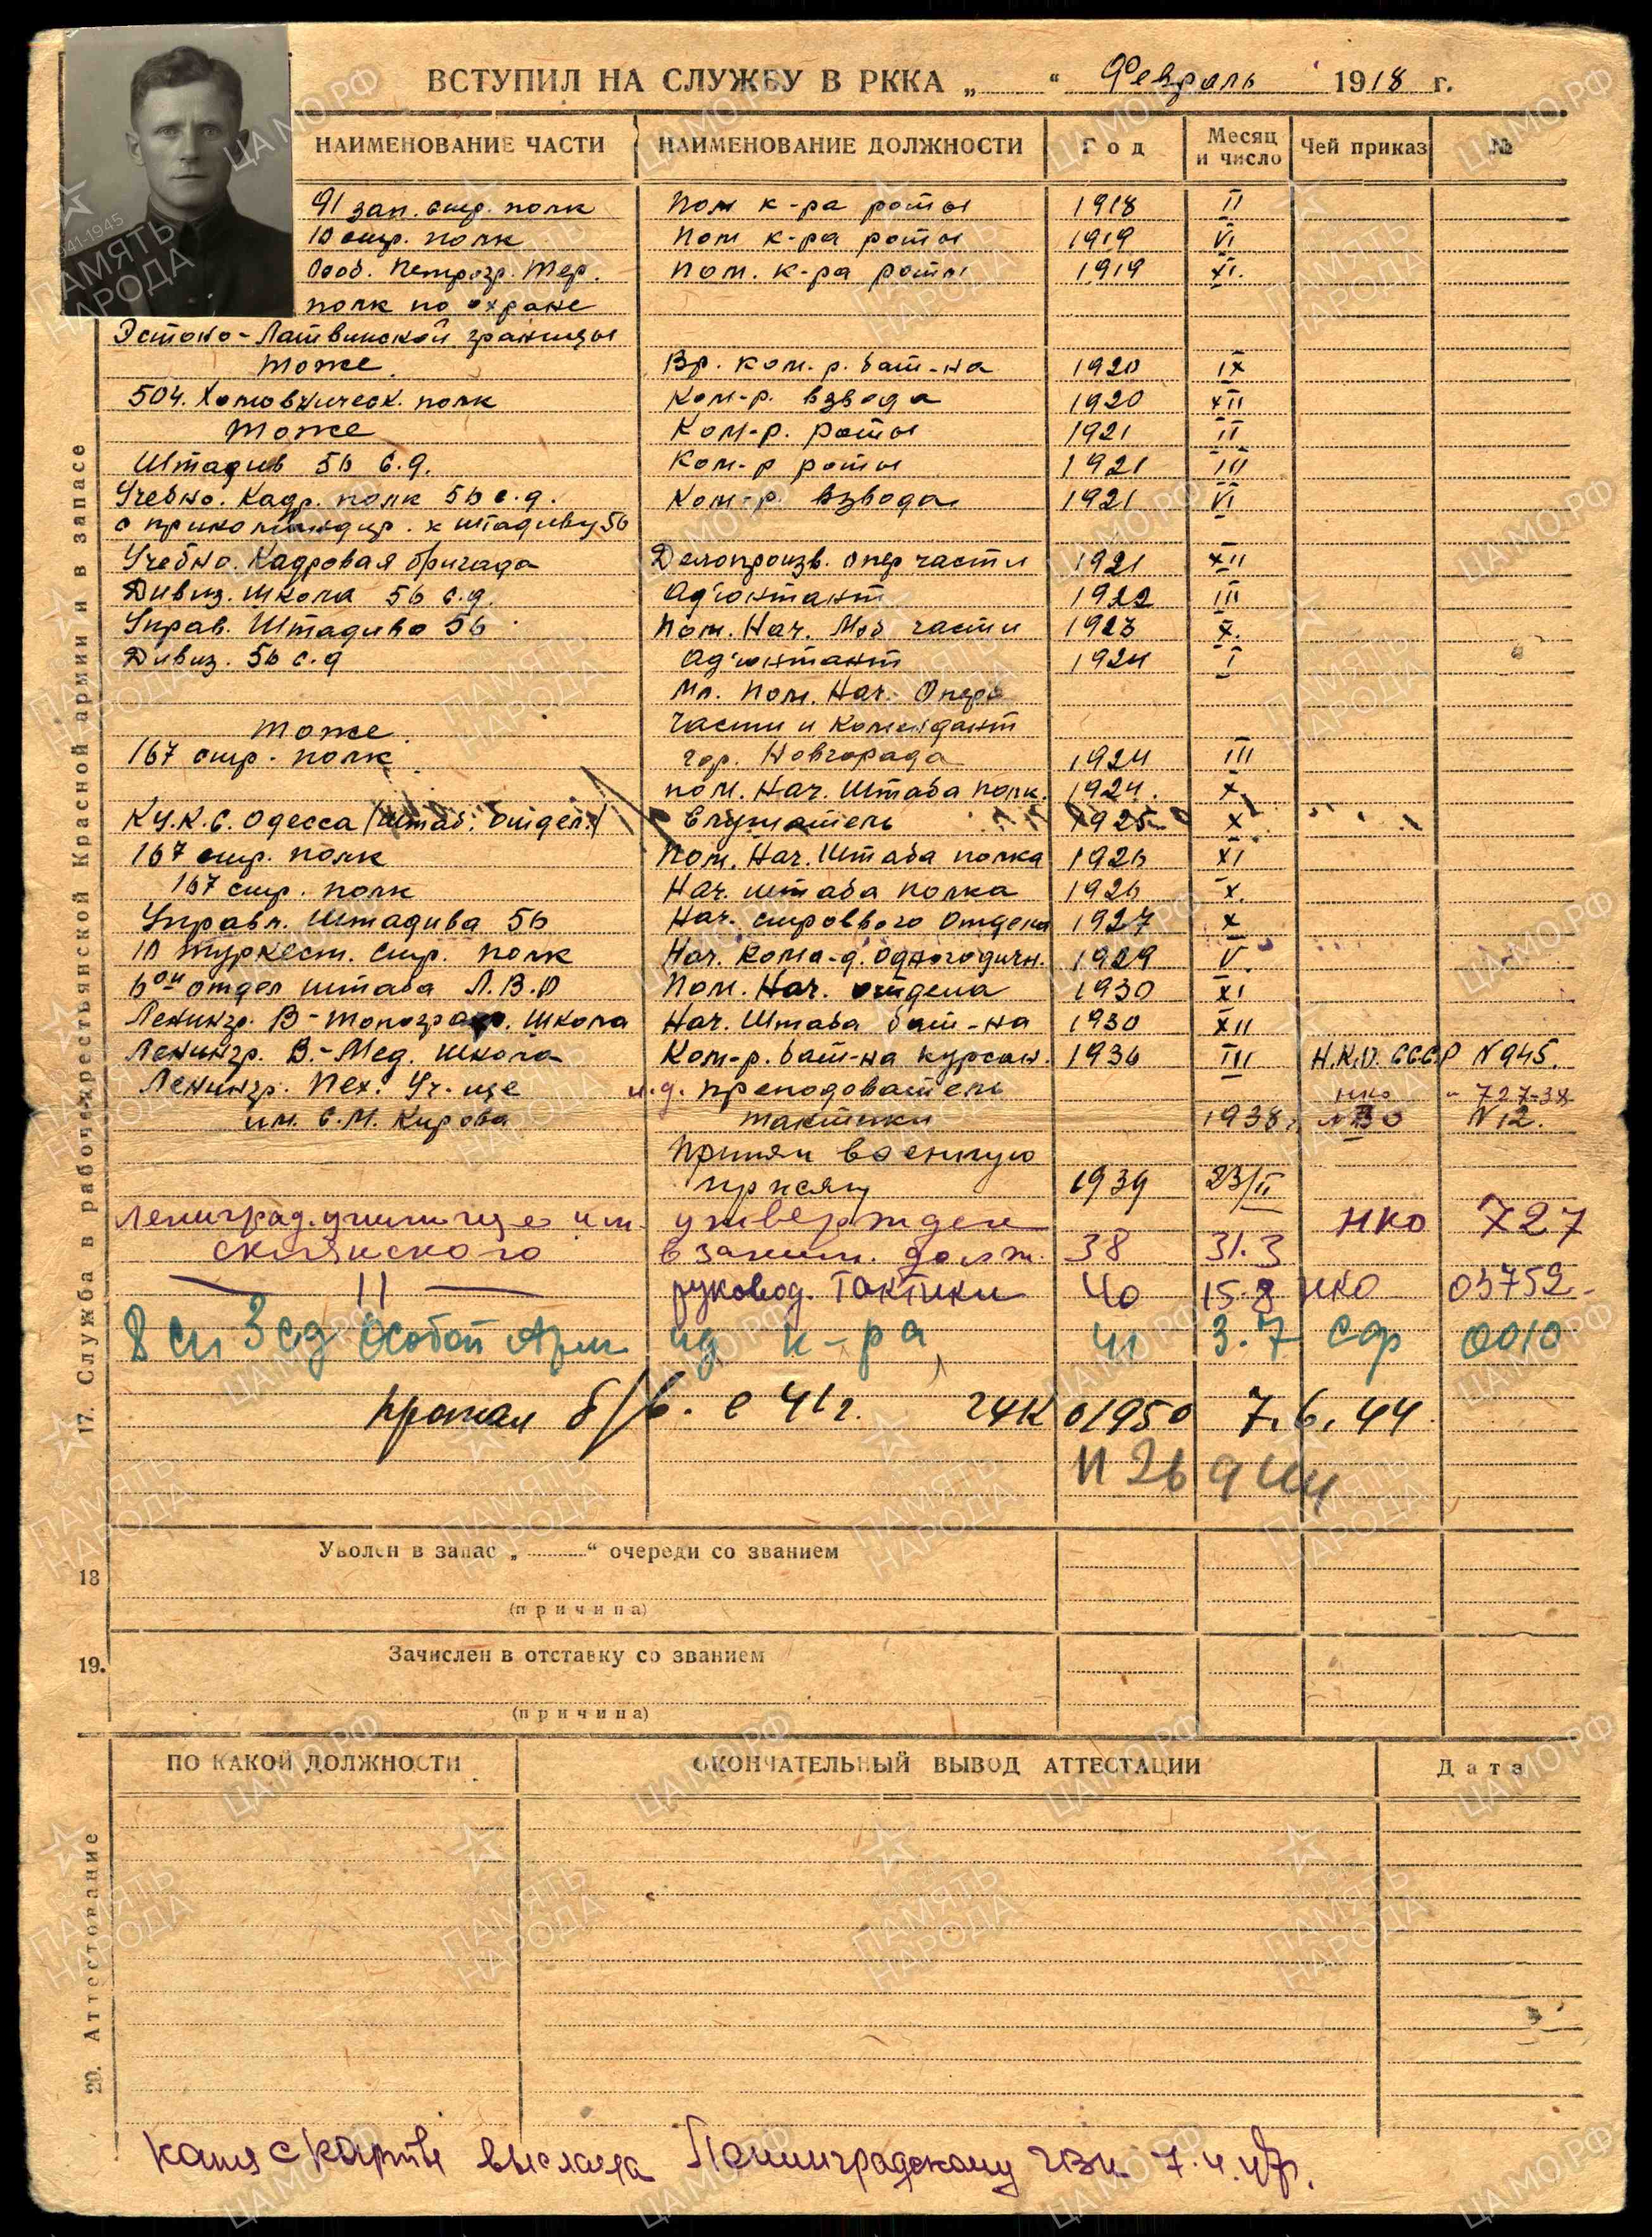 ВСТУПИЛ НА СЛУЖБУ В РККА „ “ Февраль 1918 г.
НАИМЕНОВАНИЕ ЧАСТИ НАИМЕНОВАНИЕ ДОЛЖНОСТИ Год Месяц и число Чей приказ №
91 зап. стр. полк Пом к-ра роты 1918 II
10 стр. полк Пом к-ра роты 1919 VI
Особ. Петрогр. Тер. Пом. к-ра роты 1919 XI.
полк по охране
Эстоно-Латвинской границы
тоже. Вр. ком. р. бат-на 1920 IX
504. полк Ком-р. взвода 1920 XII
тоже Ком-р. роты 1921 II
Штадив 56 с.д. Ком-р роты 1921 III
Учебно. Кадр. полк 56 с.д. Ком-р. взвода 1921 VI
с прикомандир. к штадиву 56
Учебно. Кадровая бригада Делопроизв. опер части 1921 XII
Дивиз. школа 56 с.д. Ад'ютант 1922 III
Управ. Штадива 56 Пом. Нач. Моб части 1923 X.
Дивиз. 56 с.д Ад'ютант 1924 I
Мл. Пом. Нач. Опер
тоже. части и комендант
167 стр. полк гор. Новгорода 1924 III
пом. Нач. Штаба полк. 1924. X
К.У.К.С. Одесса /Штаб. отдел./ слушатель 1925 X
167 стр. полк Пом. Нач. Штаба полка 1926 XI
167 стр. полк Нач. штаба полка 1926 X.
Управл. Штадива 56 Нач. строевого отдела 1927 X
10 туркест. стр. полк Нач. Кома-д. одногодичн. 1929 V.
6ой отдел штаба Л.В.О Пом. Нач. отдела 1930 XI
Ленингр. В-топограф. школа Нач. Штаба бат-на 1930 XII
Ленингр. В.-Мед. школа Ком-р. бат-на курсан. 1936 III Н.К.О. СССР N 945.
Ленингр. Пех. Уч-ще и.д. преподователь НКО 727-38
им. С.М. Кирова тактики 1938г. ЛВО N 12.
Принял военную
присягу 1939 23/II
Ленинград. училище им. утвержден НКО 727
Склянского в заним. долж. 38 31.3
— 11 — руковод. тактики 40 15.8 НКО 03752
8 сп 3 сд Особой Арм ид к-ра 41 3.7 0010
пропал б/в. с 41г. ГУК 01950 7.6.44
17. Служба в рабоче-крестьянской Красной армии и в запасе
18 Уволен в запас „ “ очереди со званием
(причина)
19. Зачислен в отставку со званием
(причина)
ПО КАКОЙ ДОЛЖНОСТИ ОКОНЧАТЕЛЬНЫЙ ВЫВОД АТТЕСТАЦИИ Дата
20. Аттестование
Копия с карты выслана Ленинградскому 7.4.47г.
ПАМЯТЬ НАРОДА
1941-1945
ЦАМО.РФ